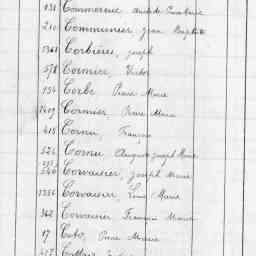 138 Commereuc
210 Communier, Jean Baptiste
1361 Corbières, Joseph
578 Cormier, Victor
154 Corbe Pierre Marie
1409 Cormier, Pierre Marie
415 Cornu, François
526 Cornu Auguste Joseph Marie
540 Corvaisier, Joseph Marie
1356 Corvaisier, Louis Marie
362 Corvaisier François Marie
17 Coto, Pierre Marie